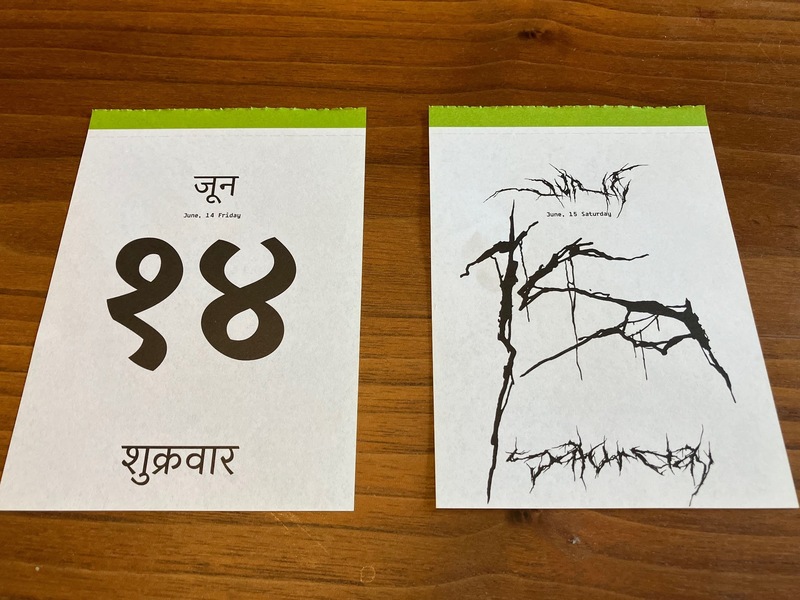 जून
June, 14 Friday
१४
शुक्रवार
June
June, 15 Saturday
15
Saturday